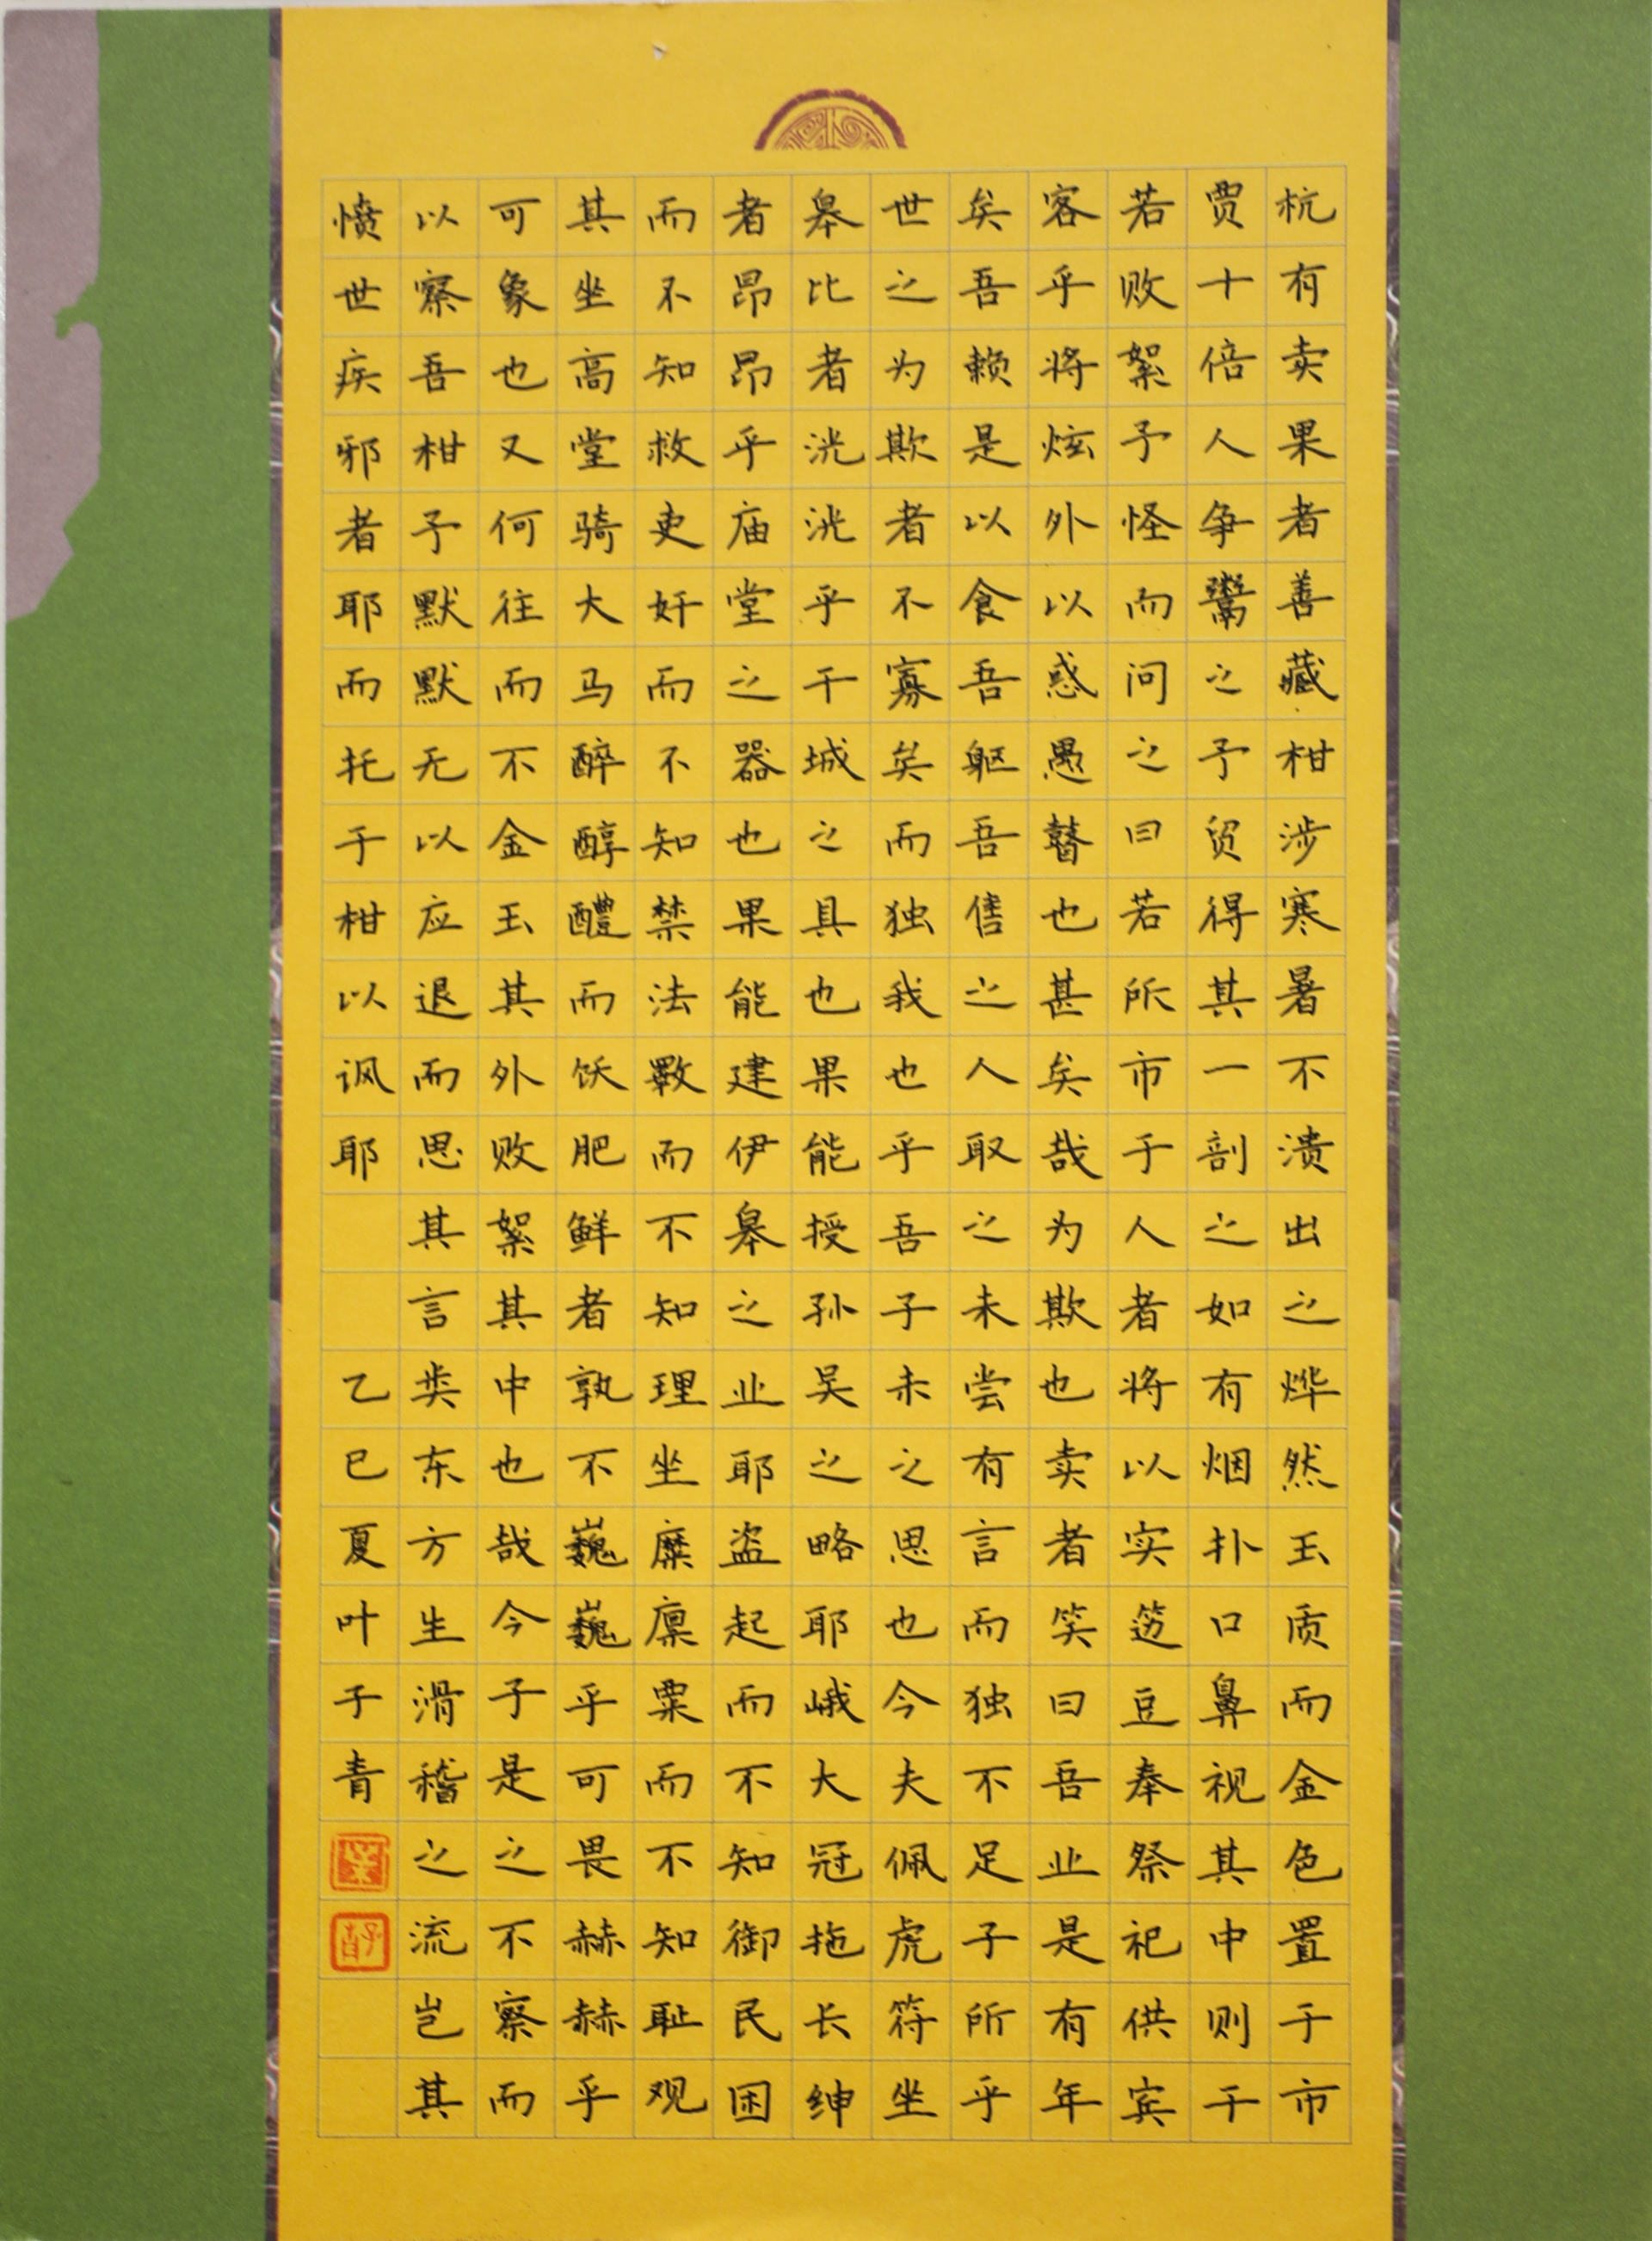 杭有卖果者善藏柑涉寒暑不溃出之烨然玉质而金色置于市
贾十倍人争鬻之予贸得其一剖之如有烟扑口鼻视其中则干
若败絮予怪而问之曰若所市于人者将以实笾豆奉祭祀供宾
客乎将炫外以惑愚瞽也甚矣哉为欺也卖者笑曰吾业是有年
矣吾赖是以食吾躯吾售之人取之未尝有言而独不足子所乎
世之为欺者不寡矣而独我也乎吾子未之思也今夫佩虎符坐
皋比者洸洸乎干城之具也果能授孙吴之略耶峨大冠拖长绅
者昂昂乎庙堂之器也果能建伊皋之业耶盗起而不知御民困
而不知救吏奸而不知禁法斁而不知理坐糜廪粟而不知耻观
其坐高堂骑大马醉醇醴而饫肥鲜者孰不巍巍乎可畏赫赫乎
可象也又何往而不金玉其外败絮其中也哉今子是之不察而
以察吾柑予默默无以应退而思其言类东方生滑稽之流岂其
愤世疾邪者耶而托于柑以讽耶 乙巳夏叶子青
葉
子青